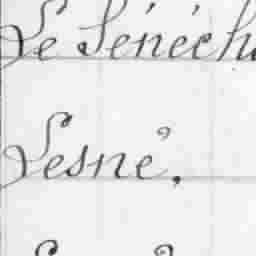 Le Sénéch
Lesné.